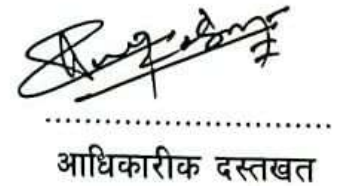 ..............................
आधिकारीक दस्तखत